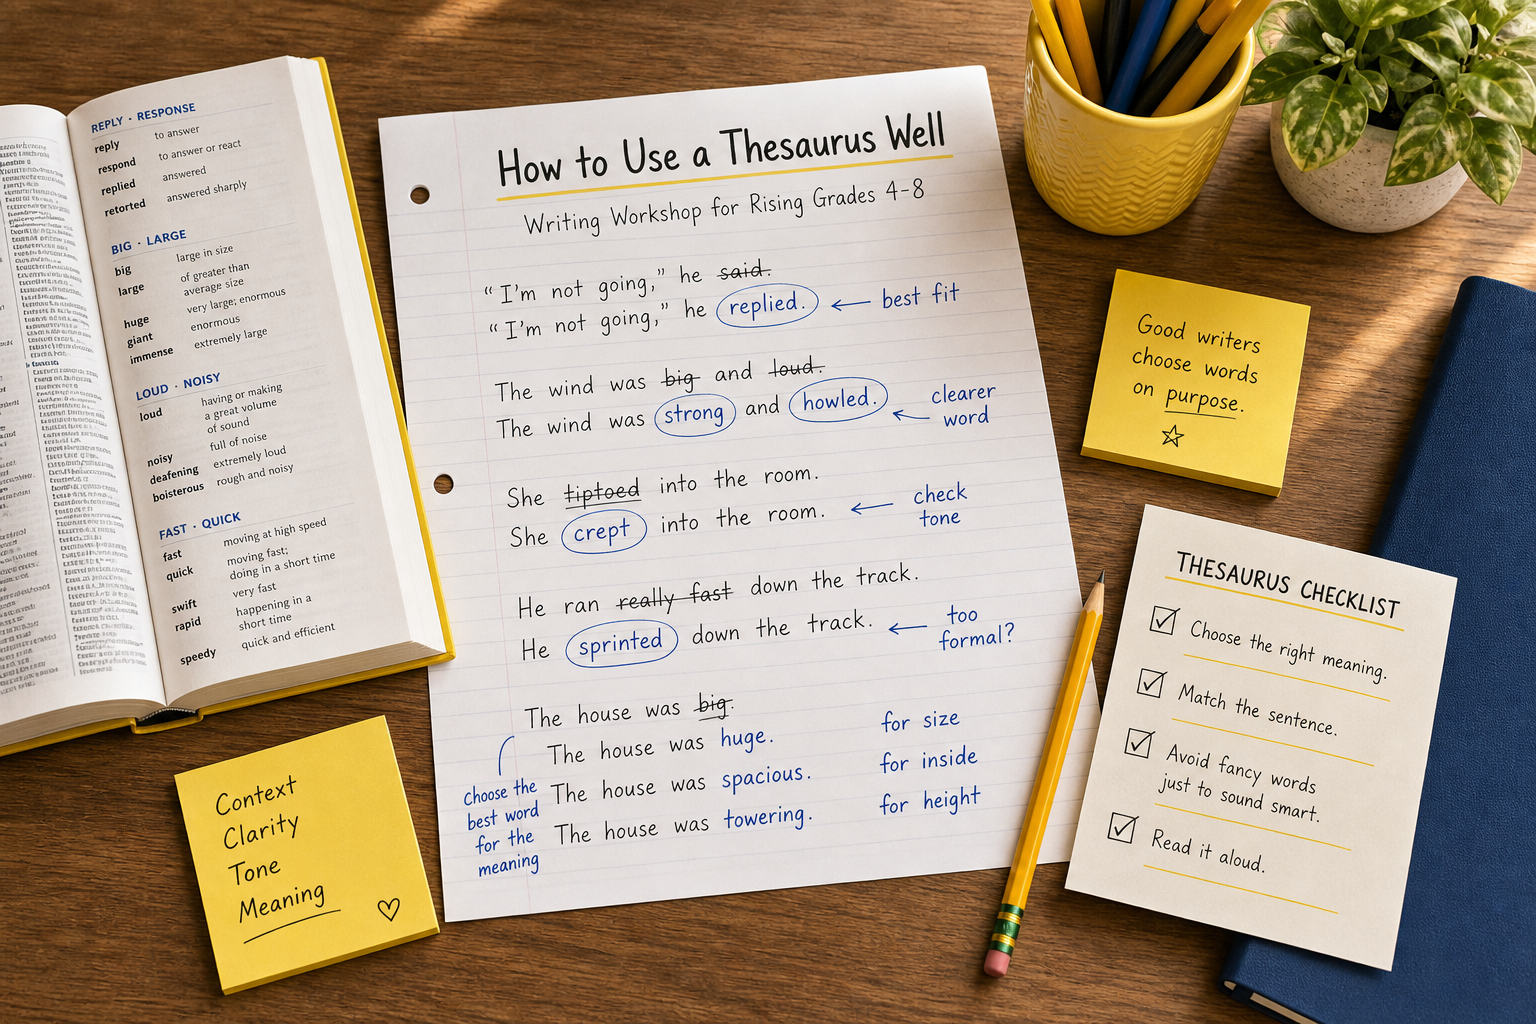 REPLY · RESPONSE
reply to answer
respond to answer or react
replied answered
retorted answered sharply
BIG · LARGE
big large in size
large of greater than
average size
huge very large; enormous
giant enormous
immense extremely large
LOUD · NOISY
loud having or making
a great volume
of sound
noisy full of noise
deafening extremely loud
boisterous rough and noisy
FAST · QUICK
fast moving at high speed
quick moving fast;
doing in a short time
swift very fast
rapid happening in a
short time
speedy quick and efficient
How to Use a Thesaurus Well
Writing Workshop for Rising Grades 4-8
“I’m not going,” he said.
“I’m not going,” he replied. ← best fit
The wind was big and loud.
The wind was strong and howled. ← clearer
word
She tiptoed into the room.
She crept into the room. ← check
tone
He ran really fast down the track.
He sprinted down the track. ← too
formal?
The house was big.
The house was huge. for size
The house was spacious. for inside
The house was towering. for height
choose the
best word
for the
meaning
Good writers
choose words
on purpose.
THESAURUS CHECKLIST
Choose the right meaning.
Match the sentence.
Avoid fancy words
just to sound smart.
Read it aloud.
Context
Clarity
Tone
Meaning